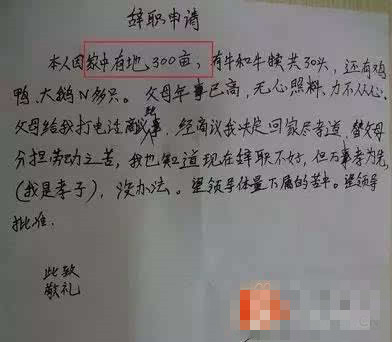 辞职申请
本人因家中有地300亩，有牛和牛犊共30头，还有鸡
鸭、大鹅N多只。父母年事已高，无心照料、力不从心。
父母给我打电话商议事，经商议我决定回家尽孝道，替父母
分担劳动之苦，我也知道现在辞职不好，但万事孝为先
(我是孝子)，没办法。望领导体量下属的苦中。望领导
批准.
此致
敬礼